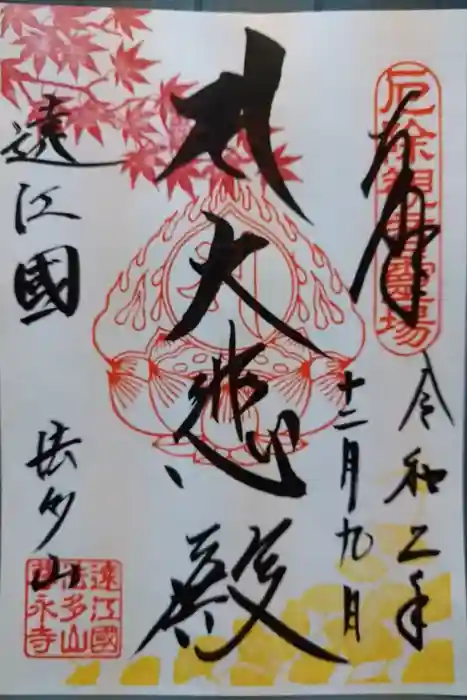 奉拝
厄除観音靈場
令和二年
十二月九日
大悲殿
遠江國
法多山
遠江國
法多山
尊永寺